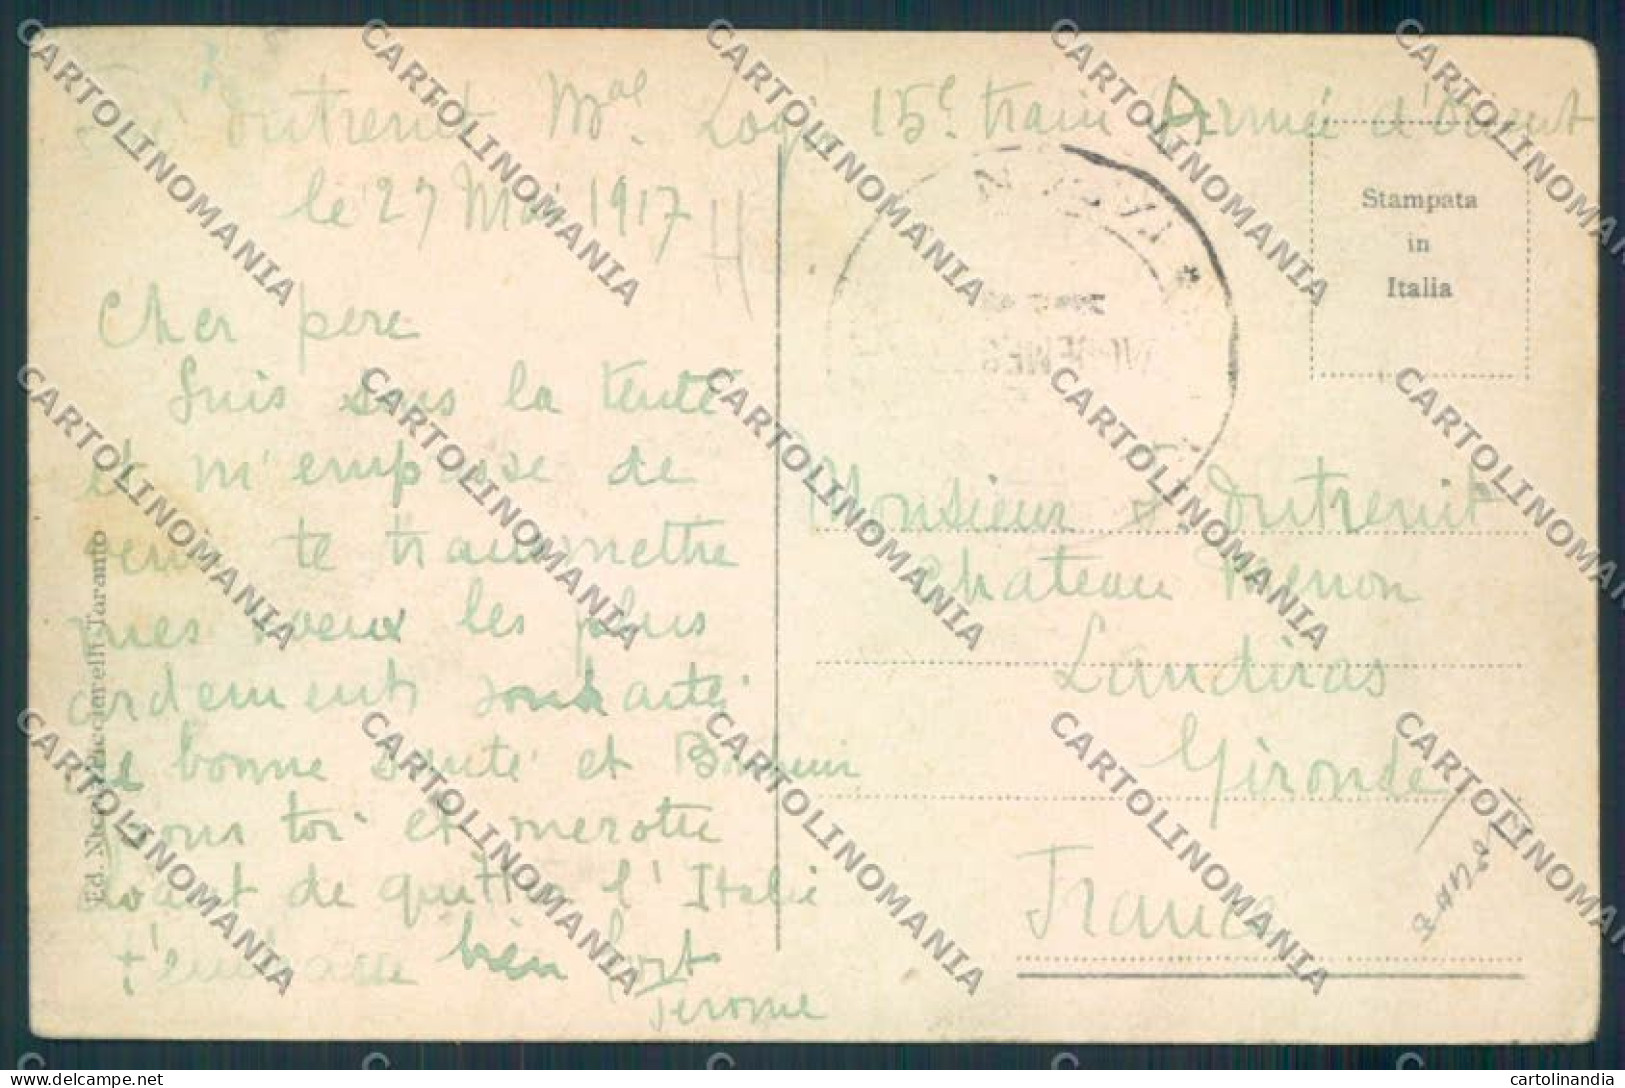 Dutrenit Mal Logis 15e train Armée d'Orient
le 27 Mai 1917
H
Cher pere
Suis sous la tente
et m'empresse de
venir te transmettre
mes voeux les plus
ardement souhaité
de bonne santé et Bonheur
pour toi et
avant de quitter l'Italie
t'embrasse bien fort
Jerome
Stampata
in
Italia
Monsieur J. Dutrenit
Chateau Menon
Landiras
Gironde
France
Ed. Nic. Pucciarelli-Taranto
CARTOLINOMANIA
cartolinandia